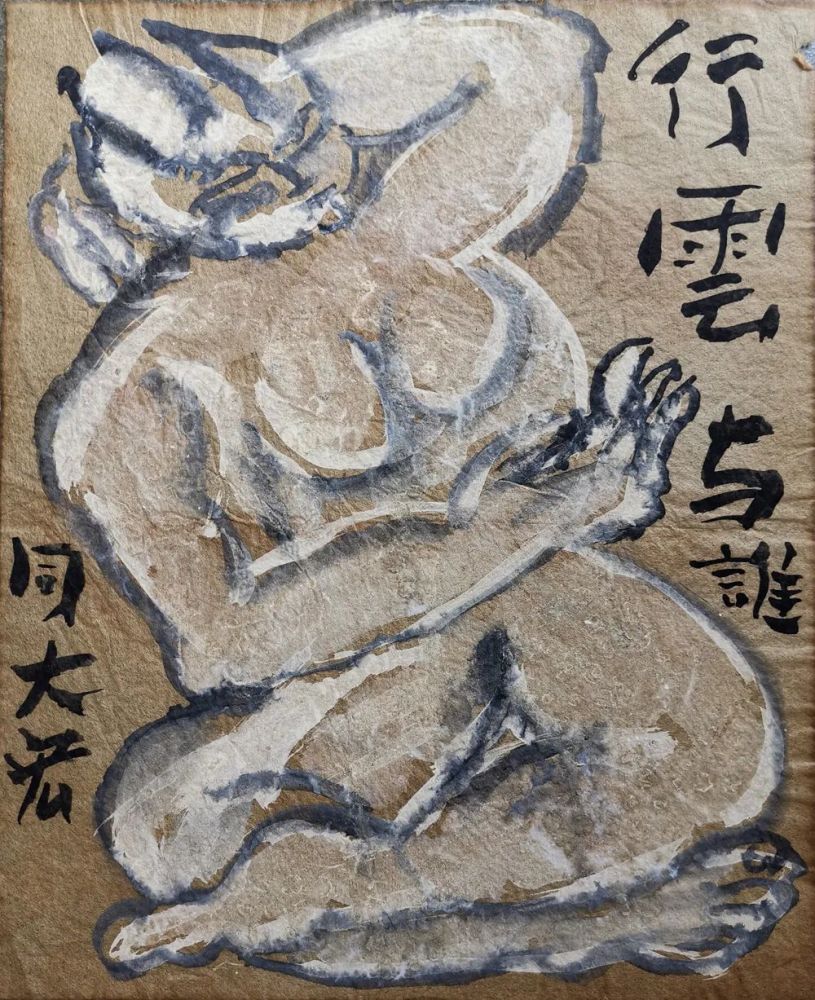 行雲与誰
同大宏